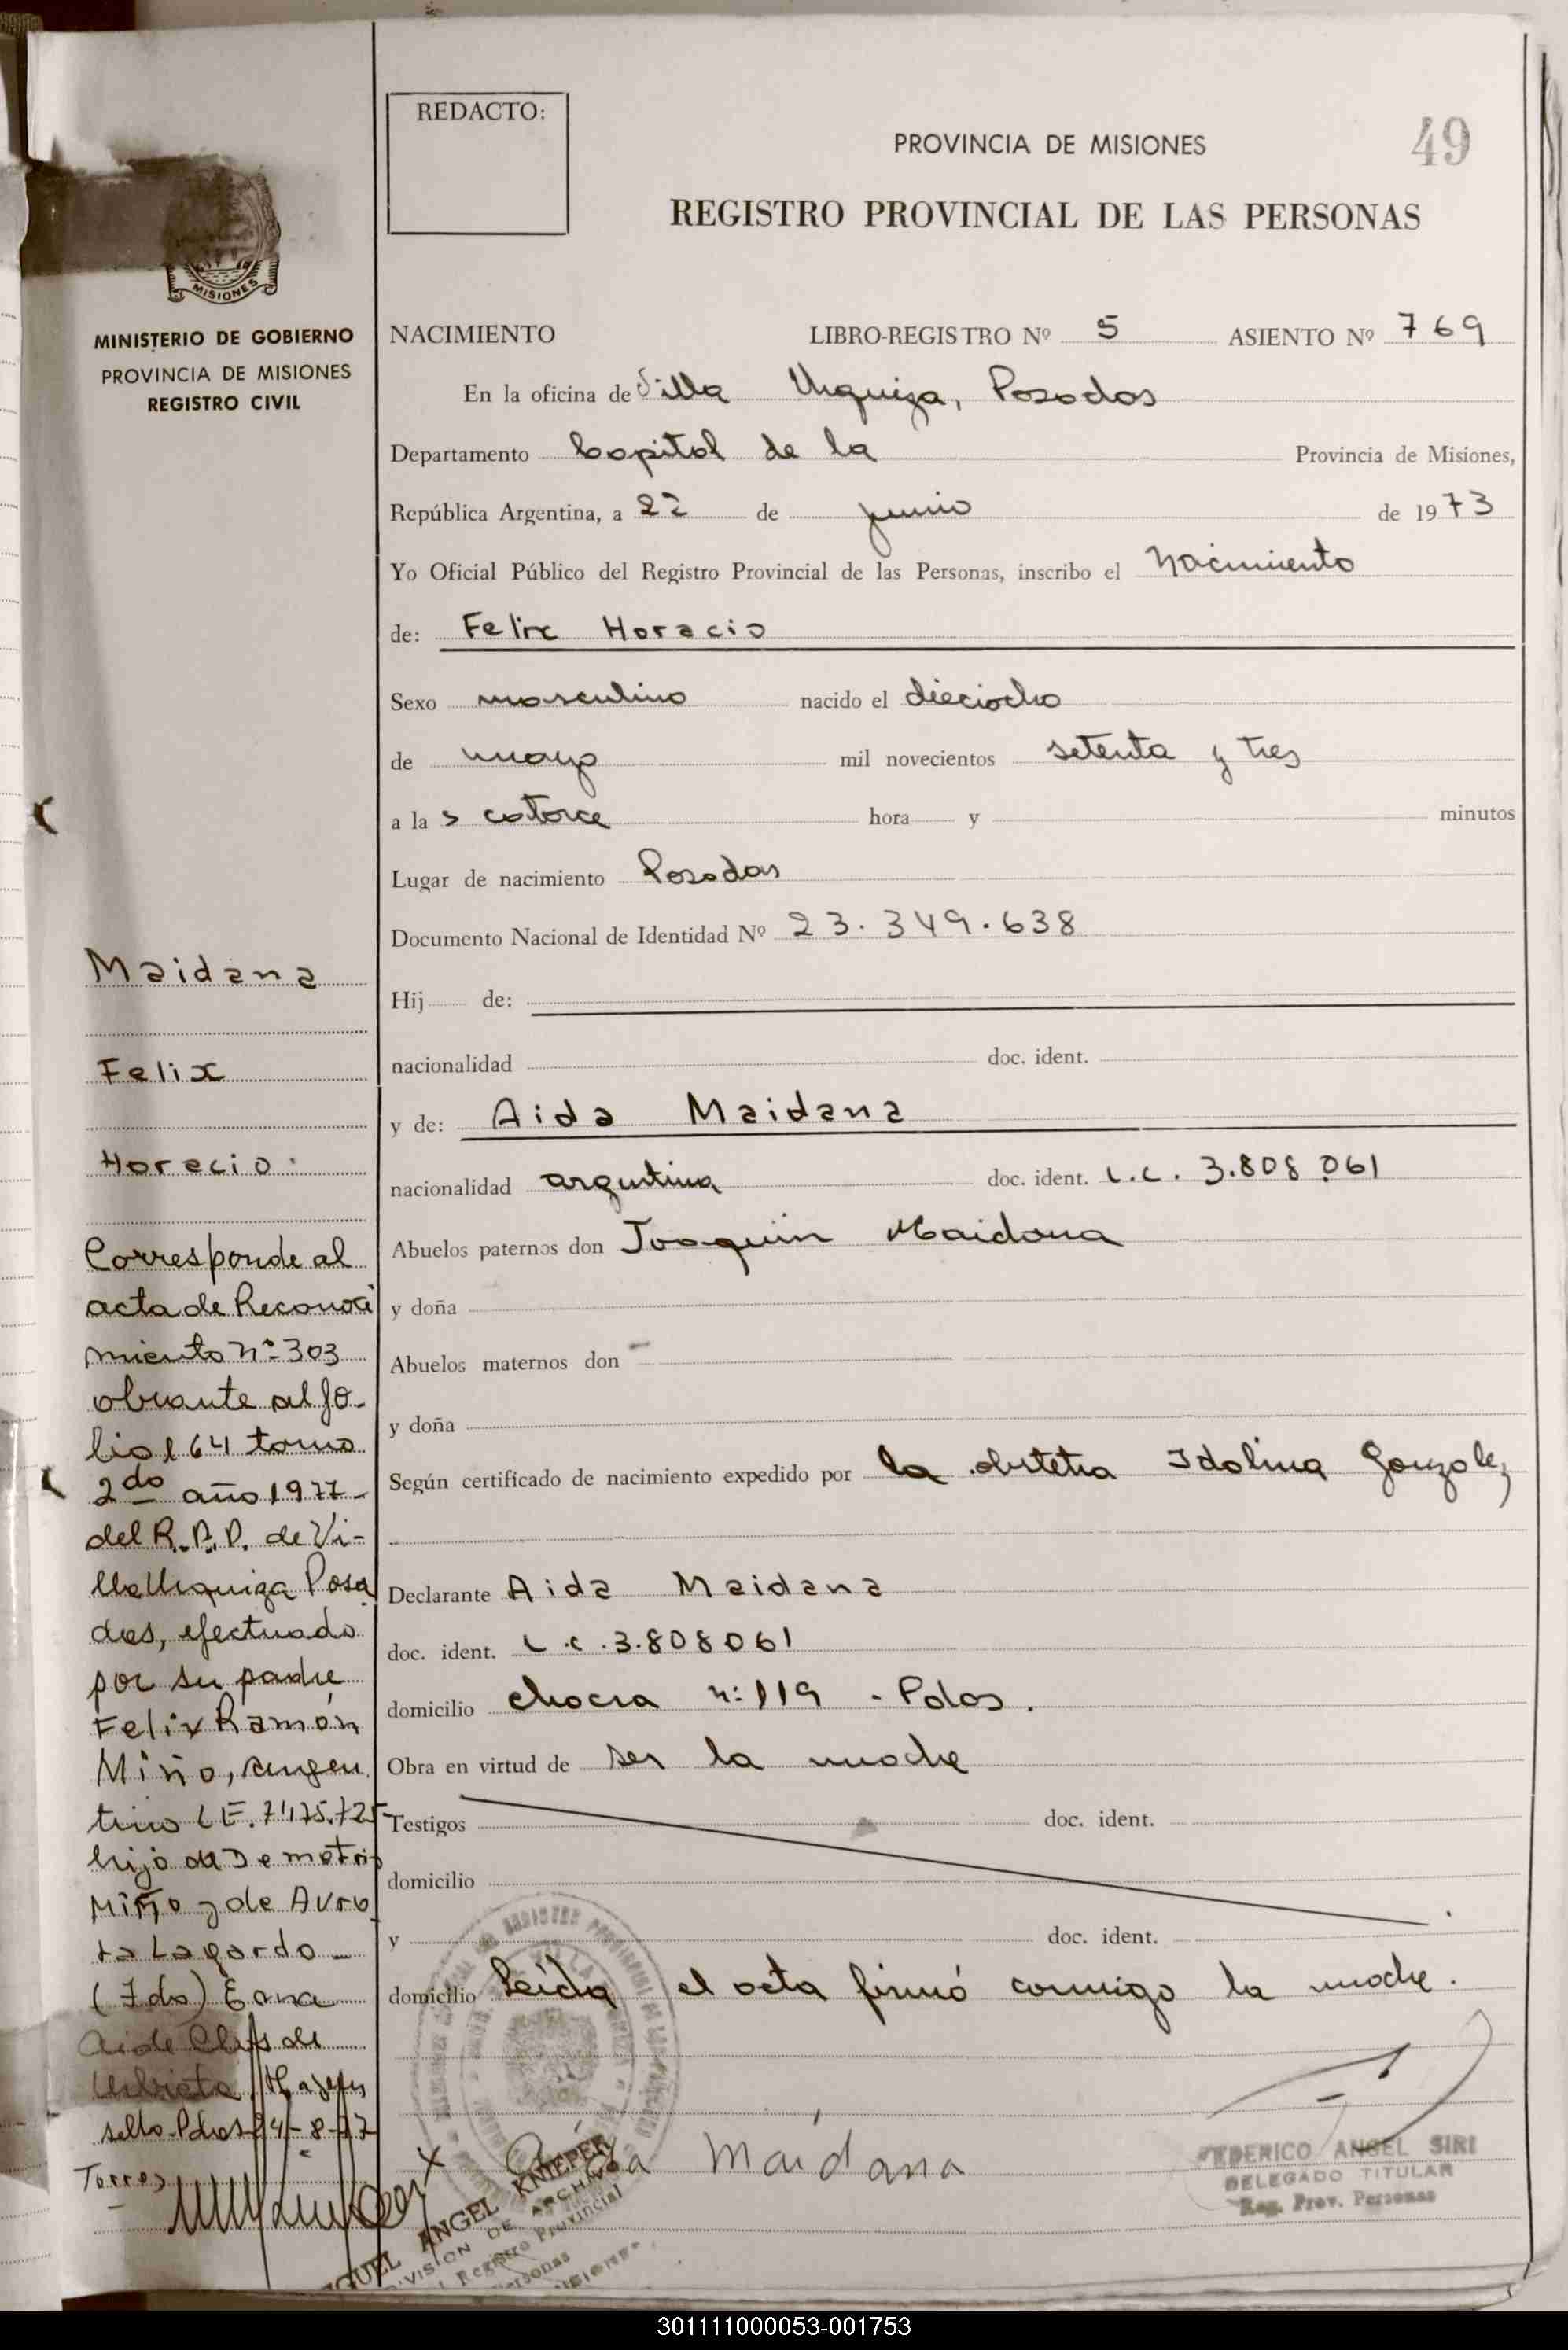 REDACTO:
PROVINCIA DE MISIONES
49
REGISTRO PROVINCIAL DE LAS PERSONAS
MISIONES
MINISTERIO DE GOBIERNO
PROVINCIA DE MISIONES
REGISTRO CIVIL
NACIMIENTO LIBRO-REGISTRO Nº 5 ASIENTO Nº 769
En la oficina de Villa Urquiza, Posadas
Departamento Capital de la Provincia de Misiones,
República Argentina, a 22 de junio de 1973
Yo Oficial Público del Registro Provincial de las Personas, inscribo el Nacimiento
de: Felix Horacio
Sexo masculino nacido el dieciocho
de mayo mil novecientos setenta y tres
a la s catorce hora y minutos
Lugar de nacimiento Posadas
Documento Nacional de Identidad Nº 23.349.638
Hij de:
nacionalidad doc. ident.
y de: Aida Maidana
nacionalidad argentina doc. ident. L.C. 3.808.061
Abuelos paternos don Joaquin Maidana
y doña
Abuelos maternos don
y doña
Según certificado de nacimiento expedido por la obstetra Idolina Gonzalez
Declarante Aida Maidana
doc. ident. L.C. 3.808061
domicilio chacra nº: 119 - Pdas.
Obra en virtud de ser la madre
Testigos doc. ident.
domicilio
y doc. ident.
domicilio Leída el acta firmó conmigo la madre.
x Aida Maidana
FEDERICO ANGEL SIRI
DELEGADO TITULAR
Reg. Prov. Personas
Maidana
Felix
Horacio.
Corresponde al
acta de Reconoci
miento nº 303
obrante al fo-
lio 164 tomo
2do año 1977-
del R.P.P. de Vi-
lla Urquiza Posa
das, efectuado
por su padre
Felix Ramón
Miño, argen
tino L.E. 7.175.725
hijo de Demetrio
Miño y de Auro
ra Lagardo-
(Fdo)
Aide de
Hay un
sello. Pdas 24-8-77
Torres
MIGUEL ANGEL KNIEPER
DIVISION DE ARCHIVO
Registro Provincial
Personas
301111000053-001753